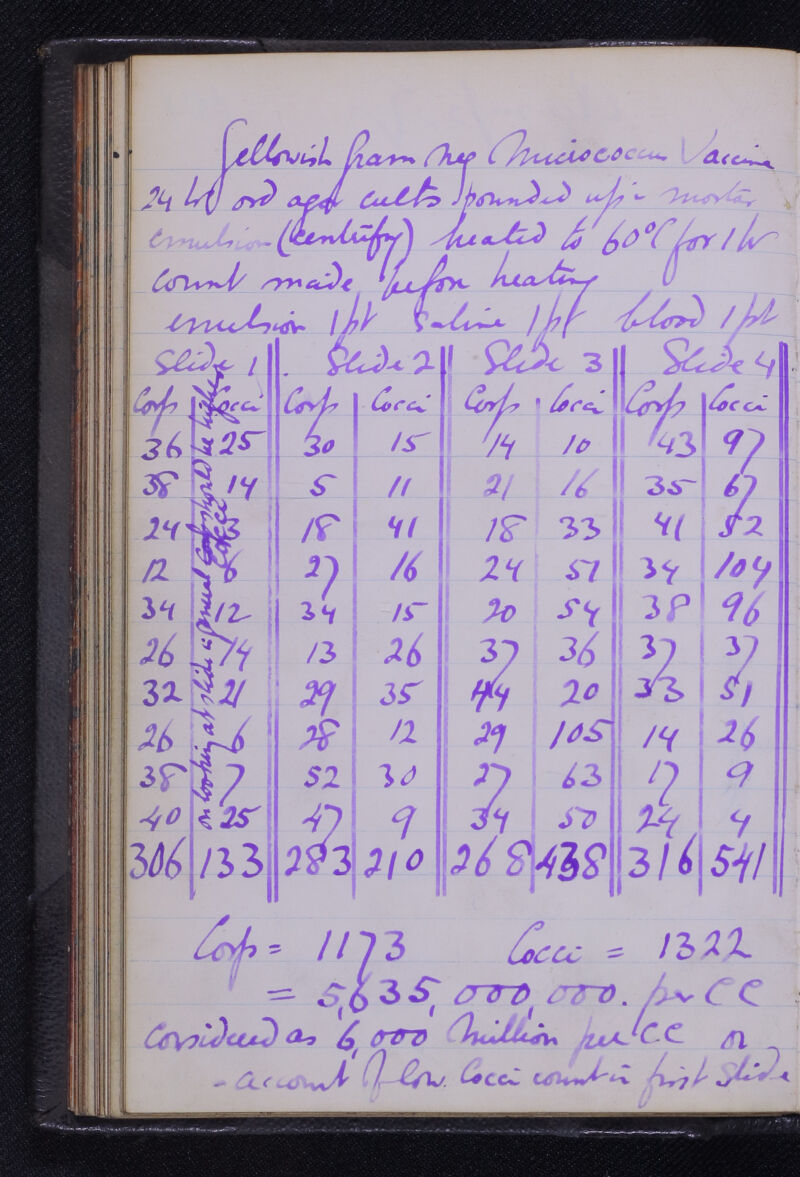 Yellowish Gram Neg Micrococcus Vaccine
24 hr ord agar cults pounded up in mortar
emulsion (centrify) heated to 60°C for 1 hr
count made before heating
emulsion 1 pt Saline 1 pt blood 1 pt
Slide 1 Slide 2 Slide 3 Slide 4
Corp Cocci Corp Cocci Corp Cocci Corp Cocci
36 25 30 15 14 10 43 97
38 14 5 11 21 16 35 67
24 18 41 18 33 41 52
12 6 27 16 24 51 34 104
34 12 34 15 20 54 38 96
26 14 13 26 37 36 37 37
32 21 29 35 44 20 33 51
26 6 28 12 29 105 14 26
38 7 52 30 27 63 17 9
40 25 47 9 34 50 24 4
306 133 283 210 268 438 316 541
on looking at slide in general cocci should be higher
Corp = 1173 Cocci = 1322
= 5,635,000,000. per CC
Considered as 6,000 Million per CC on
- account of low Cocci count in first Slide